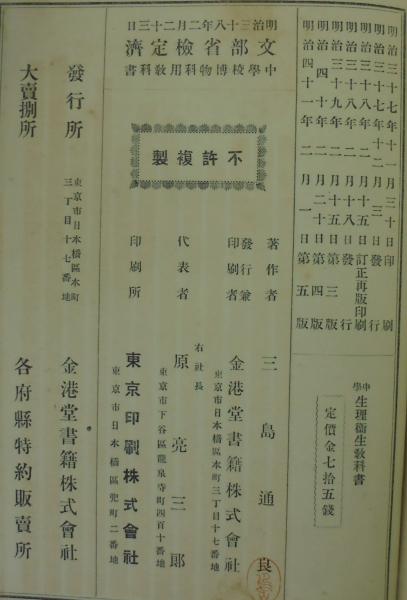 中學生理衞生教科書
定價金七拾五錢
明治三十七年十一月三十日印刷
明治三十七年十二月三日發行
明治三十八年二月十五日訂正再版印刷
明治三十八年二月十八日發行
明治三十九年二月十五日第三版
明治四十年二月二十日第四版
明治四十一年二月一日第五版
不許複製
著作者 三島通良
發行兼印刷者 金港堂書籍株式會社
東京市日本橋區本町三丁目十七番地
右社長
代表者 原亮三郎
東京市下谷區龍泉寺町四百十番地
印刷所 東京印刷株式會社
東京市日本橋區兜町二番地
明治三十八年二月二十三日
文部省檢定濟
中學校博物科用教科書
發行所 東京市日本橋區本町三丁目十七番地 金港堂書籍株式會社
大賣捌所 各府縣特約販賣所